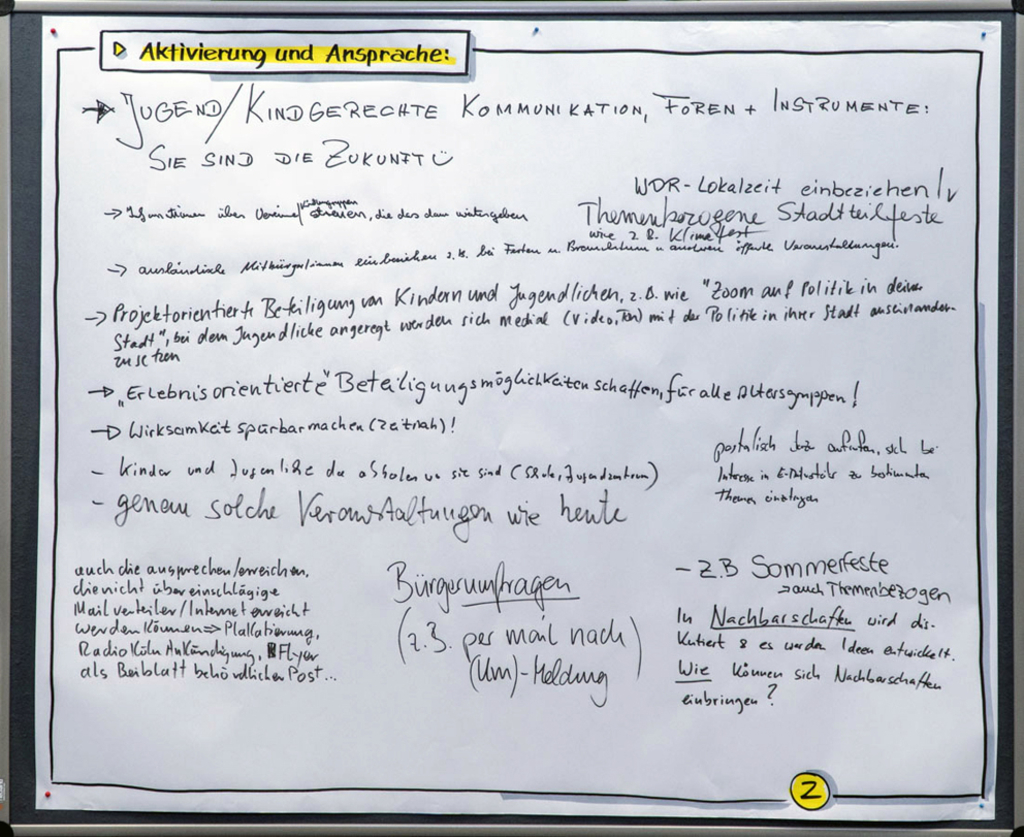 Aktivierung und Ansprache:
→ JUGEND/KINDGERECHTE KOMMUNIKATION, FOREN + INSTRUMENTE:
SIE SIND DIE ZUKUNFT Ü
WDR-Lokalzeit einbeziehen!
→ Informationen über Vereine/ streuen, die das dann weitergeben
Themenbezogene Stadtteilfeste
wie z.B. Klimafest
→ ausländische Mitbürger/innen einbeziehen z.B. bei Festen u. Brauchtum u. anderen öffentl. Veranstaltungen.
→ Projektorientierte Beteiligung von Kindern und Jugendlichen, z.B. wie "Zoom auf Politik in deiner
Stadt", bei dem Jugendliche angeregt werden sich medial (Video, Ton) mit der Politik in ihrer Stadt auseinander-
zusetzen
→ "Erlebnisorientierte" Beteiligungsmöglichkeiten schaffen, für alle Altersgruppen!
→ Wirksamkeit spürbar machen (zeitnah)!
- Kinder und Jugendliche da abholen wo sie sind (Schule, Jugendzentrum)
- genau solche Veranstaltungen wie heute
postalisch dazu aufrufen, sich bei
Interesse in E-Mailverteiler zu bestimmten
Themen einzutragen
auch die ansprechen/erreichen,
die nicht über einschlägige
Mailverteiler/Internet erreicht
werden können => Plakatierung,
Radio Köln Ankündigung, Flyer
als Beiblatt behördlicher Post...
Bürgerumfragen
(z.B. per mail nach
(Um)-Meldung)
- z.B Sommerfeste
→ auch Themenbezogen
In Nachbarschaften wird dis-
kutiert & es werden Ideen entwickelt.
Wie können sich Nachbarschaften
einbringen?
2